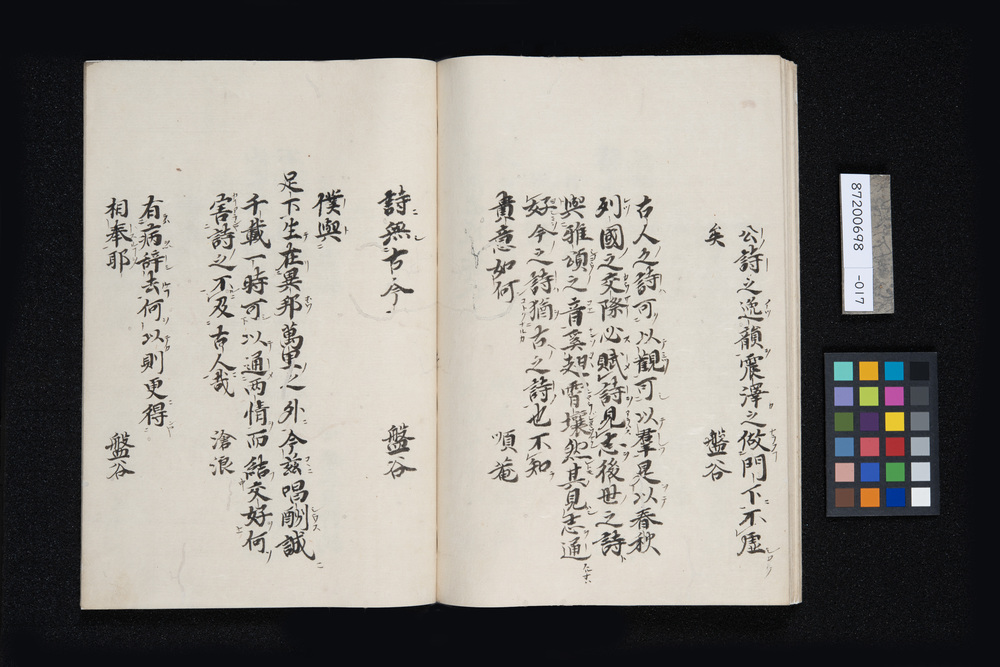 公詩之逸韻震澤之倣門下不虛
矣 盤谷
古人之詩可以觀可以羣是以春秋
列國之交際必賦詩見志後世之詩
與雅頌之音奚翅霄壤然其見志通
好今之詩猶古之詩也不知
貴意如何 順菴
詩無古今 盤谷
僕與
足下生在異邦萬里之外今茲唱酬誠
千載一時可以通兩情而結交好何
害詩之不及古人哉 滄浪
有病辞去何以則更得
相奉耶 盤谷
87200698
-017